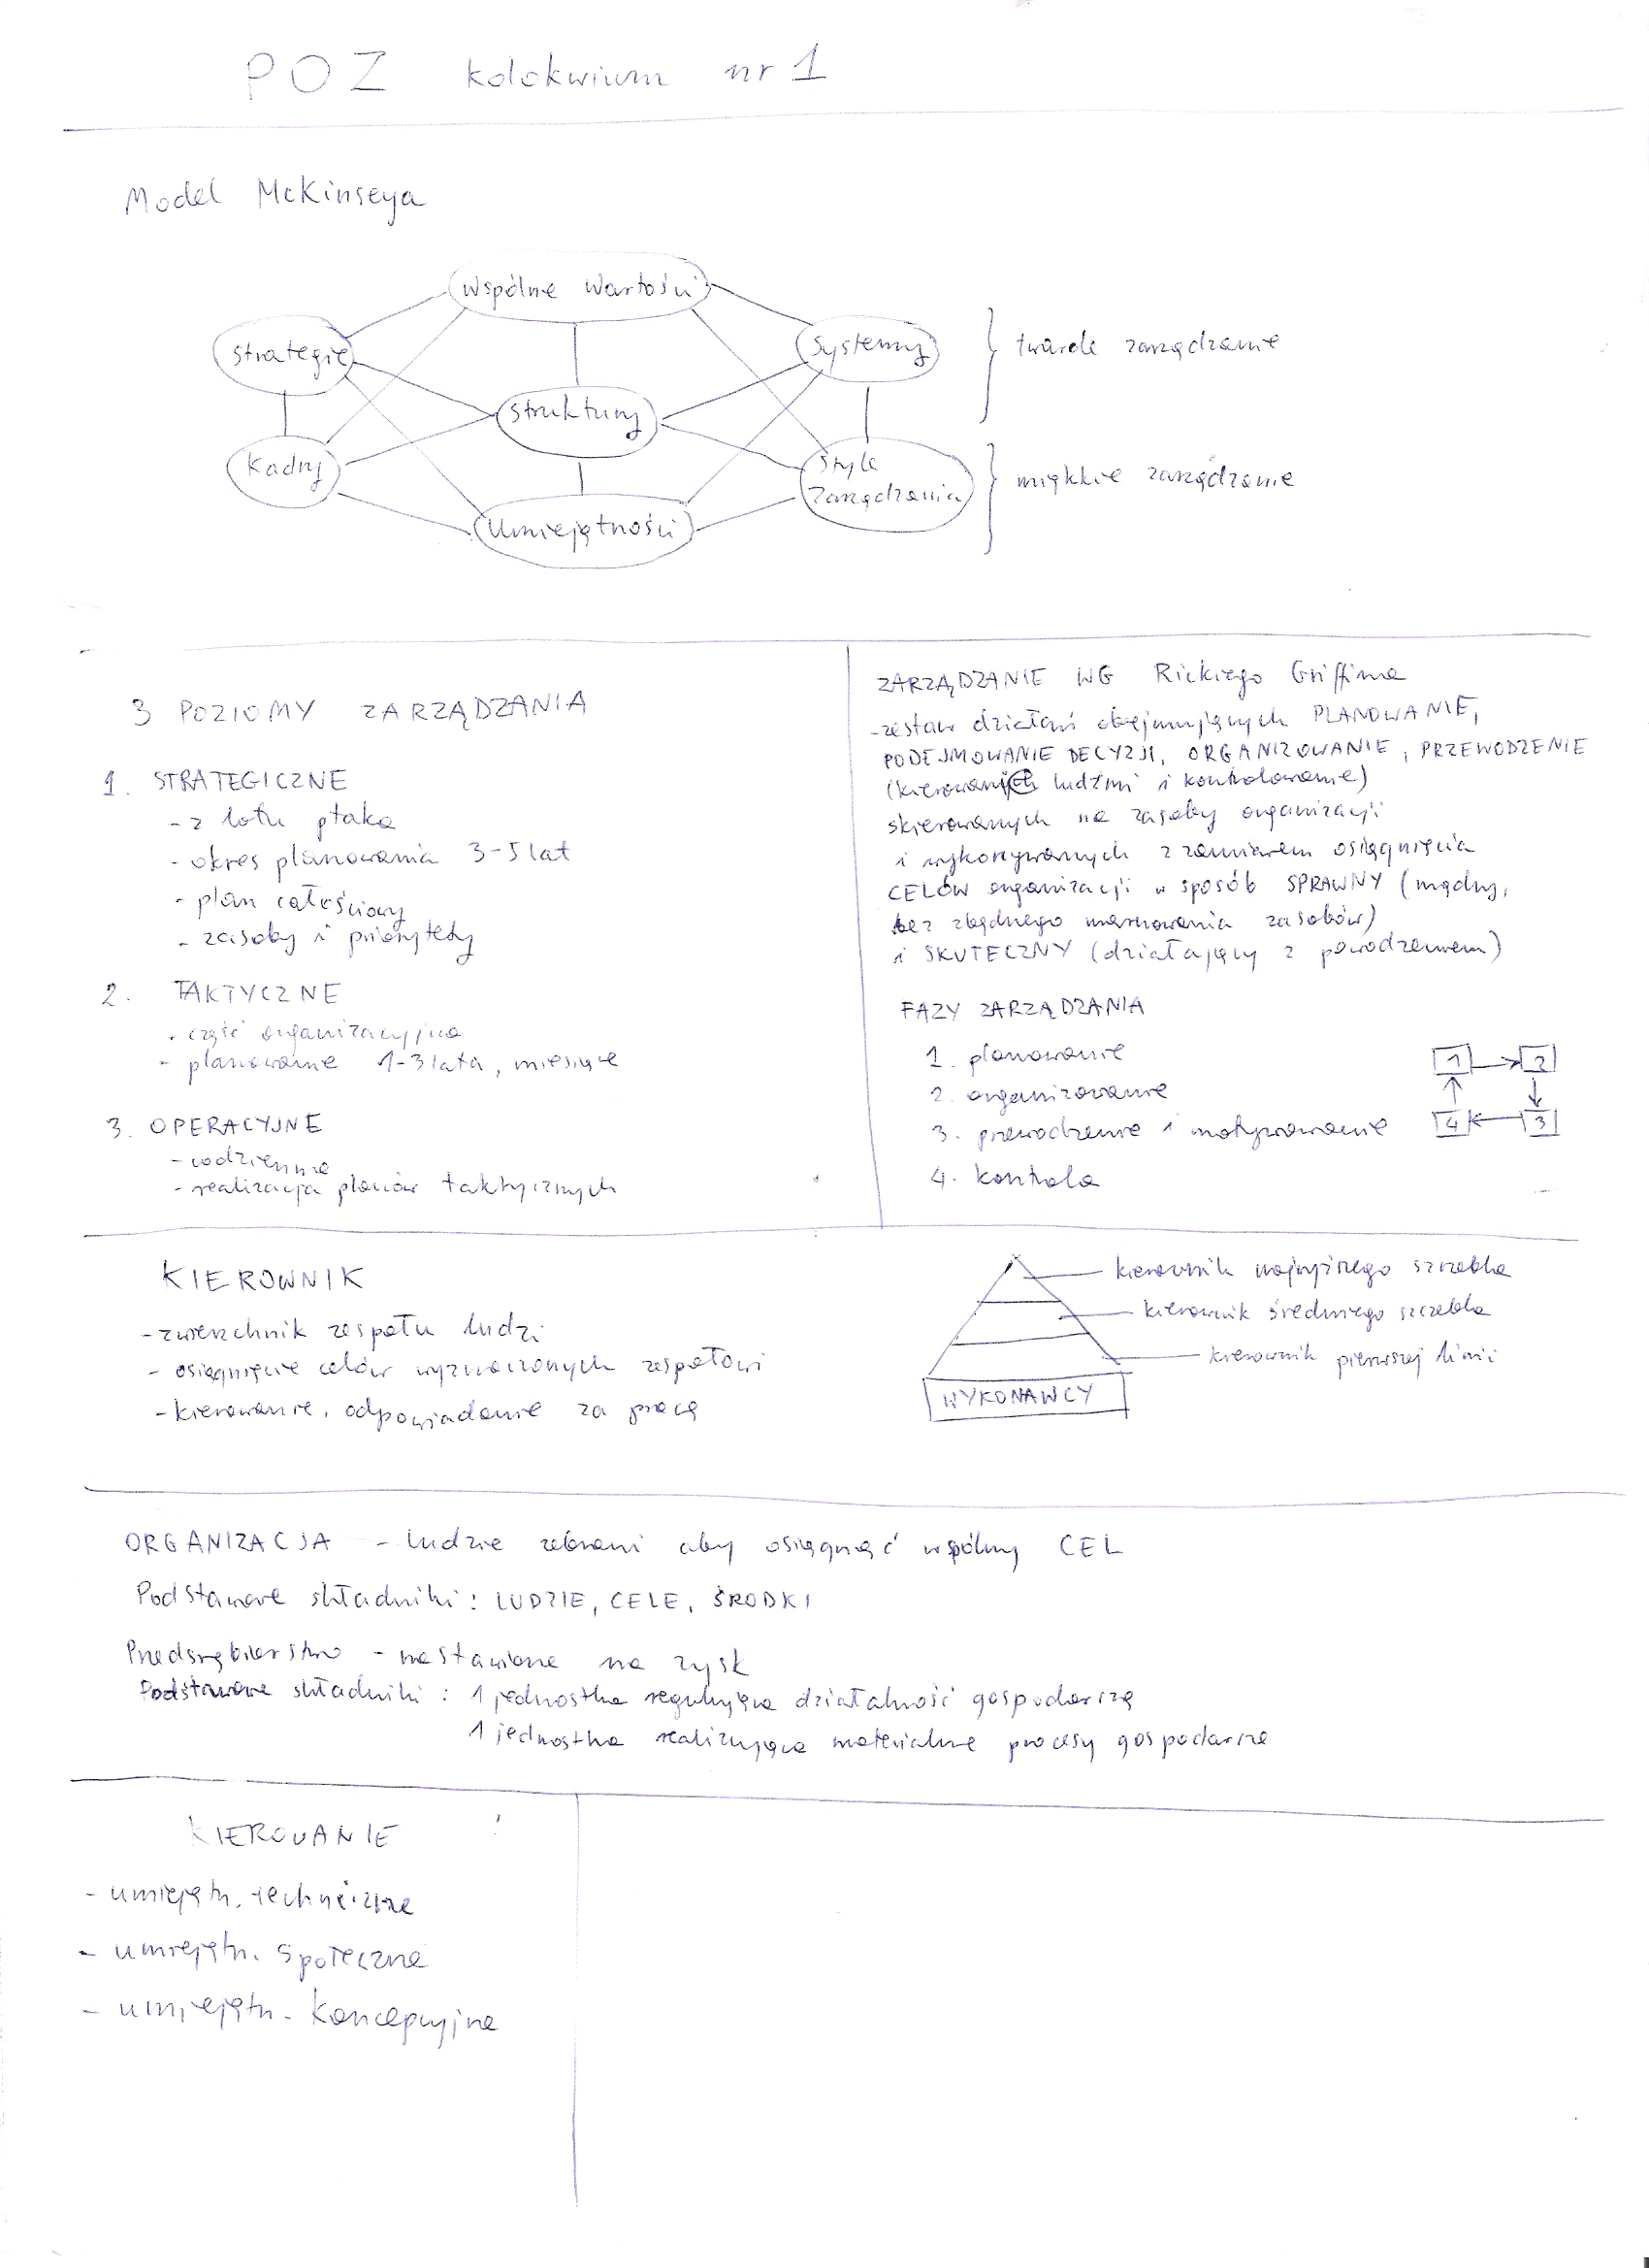 POZ kolokwium nr 1
Model McKinseya
Wspólne wartości
Strategie
Systemy
twarde zarządzanie
Struktury
Kadry
Style
zarządzania
miękkie zarządzanie
Umiejętności
3 POZIOMY ZARZĄDZANIA
1. STRATEGICZNE
- z lotu ptaka
- okres planowania 3-5 lat
- plan całościowy
- zasoby i priorytety
2. TAKTYCZNE
- część organizacyjna
- planowanie 1-3 lata, miesiące
3. OPERACYJNE
- codzienne
- realizacja planów taktycznych
ZARZĄDZANIE WG Rickiego Griffina
- zestaw działań obejmujących PLANOWANIE,
PODEJMOWANIE DECYZJI, ORGANIZOWANIE, PRZEWODZENIE
(kierowanie ludźmi i kontrolowanie)
skierowanych na zasoby organizacji
i wykonywanych z zamiarem osiągnięcia
CELÓW organizacji w sposób SPRAWNY (mądry,
bez zbędnego marnowania zasobów)
i SKUTECZNY (działający z powodzeniem)
FAZY ZARZĄDZANIA
1. planowanie
2. organizowanie
3. przewodzenie i motywowanie
4. kontrola
1 2
4 3
KIEROWNIK
- zwierzchnik zespołu ludzi
- osiągnięcie celów wyznaczonych zespołowi
- kierowanie, odpowiadanie za pracę
kierownik najwyższego szczebla
kierownik średniego szczebla
kierownik pierwszej linii
WYKONAWCY
ORGANIZACJA - ludzie zebrani aby osiągnąć wspólny CEL
Podstawowe składniki: LUDZIE, CELE, ŚRODKI
Przedsiębiorstwo - nastawione na zysk
Podstawowe składniki: 1 jednostka regulująca działalność gospodarczą
1 jednostka realizująca materialne procesy gospodarcze
KIEROWANIE
- umiejętn. techniczne
- umiejętn. społeczne
- umiejętn. koncepcyjne